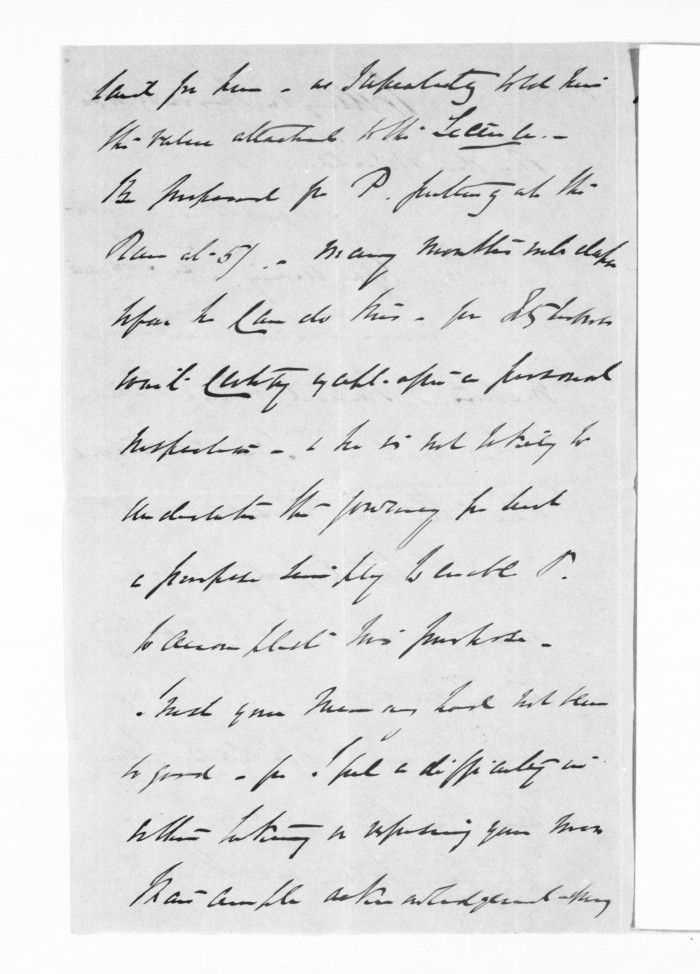 for him - as I repeatedly told him
the value attached to the Lecture. -
Be prepared for P. putting at the
Run at 5/. - many months must elapse
before he Can do this - for
wait Certify after a personal
inspection - & he is not likely to
undertake the journey for such
a purpose simply to enable P.
to accomplish his purpose -
I wish your Memory had not been
so good - for I feel a difficulty in
either taking or refusing your more
than ample acknowledgement of my